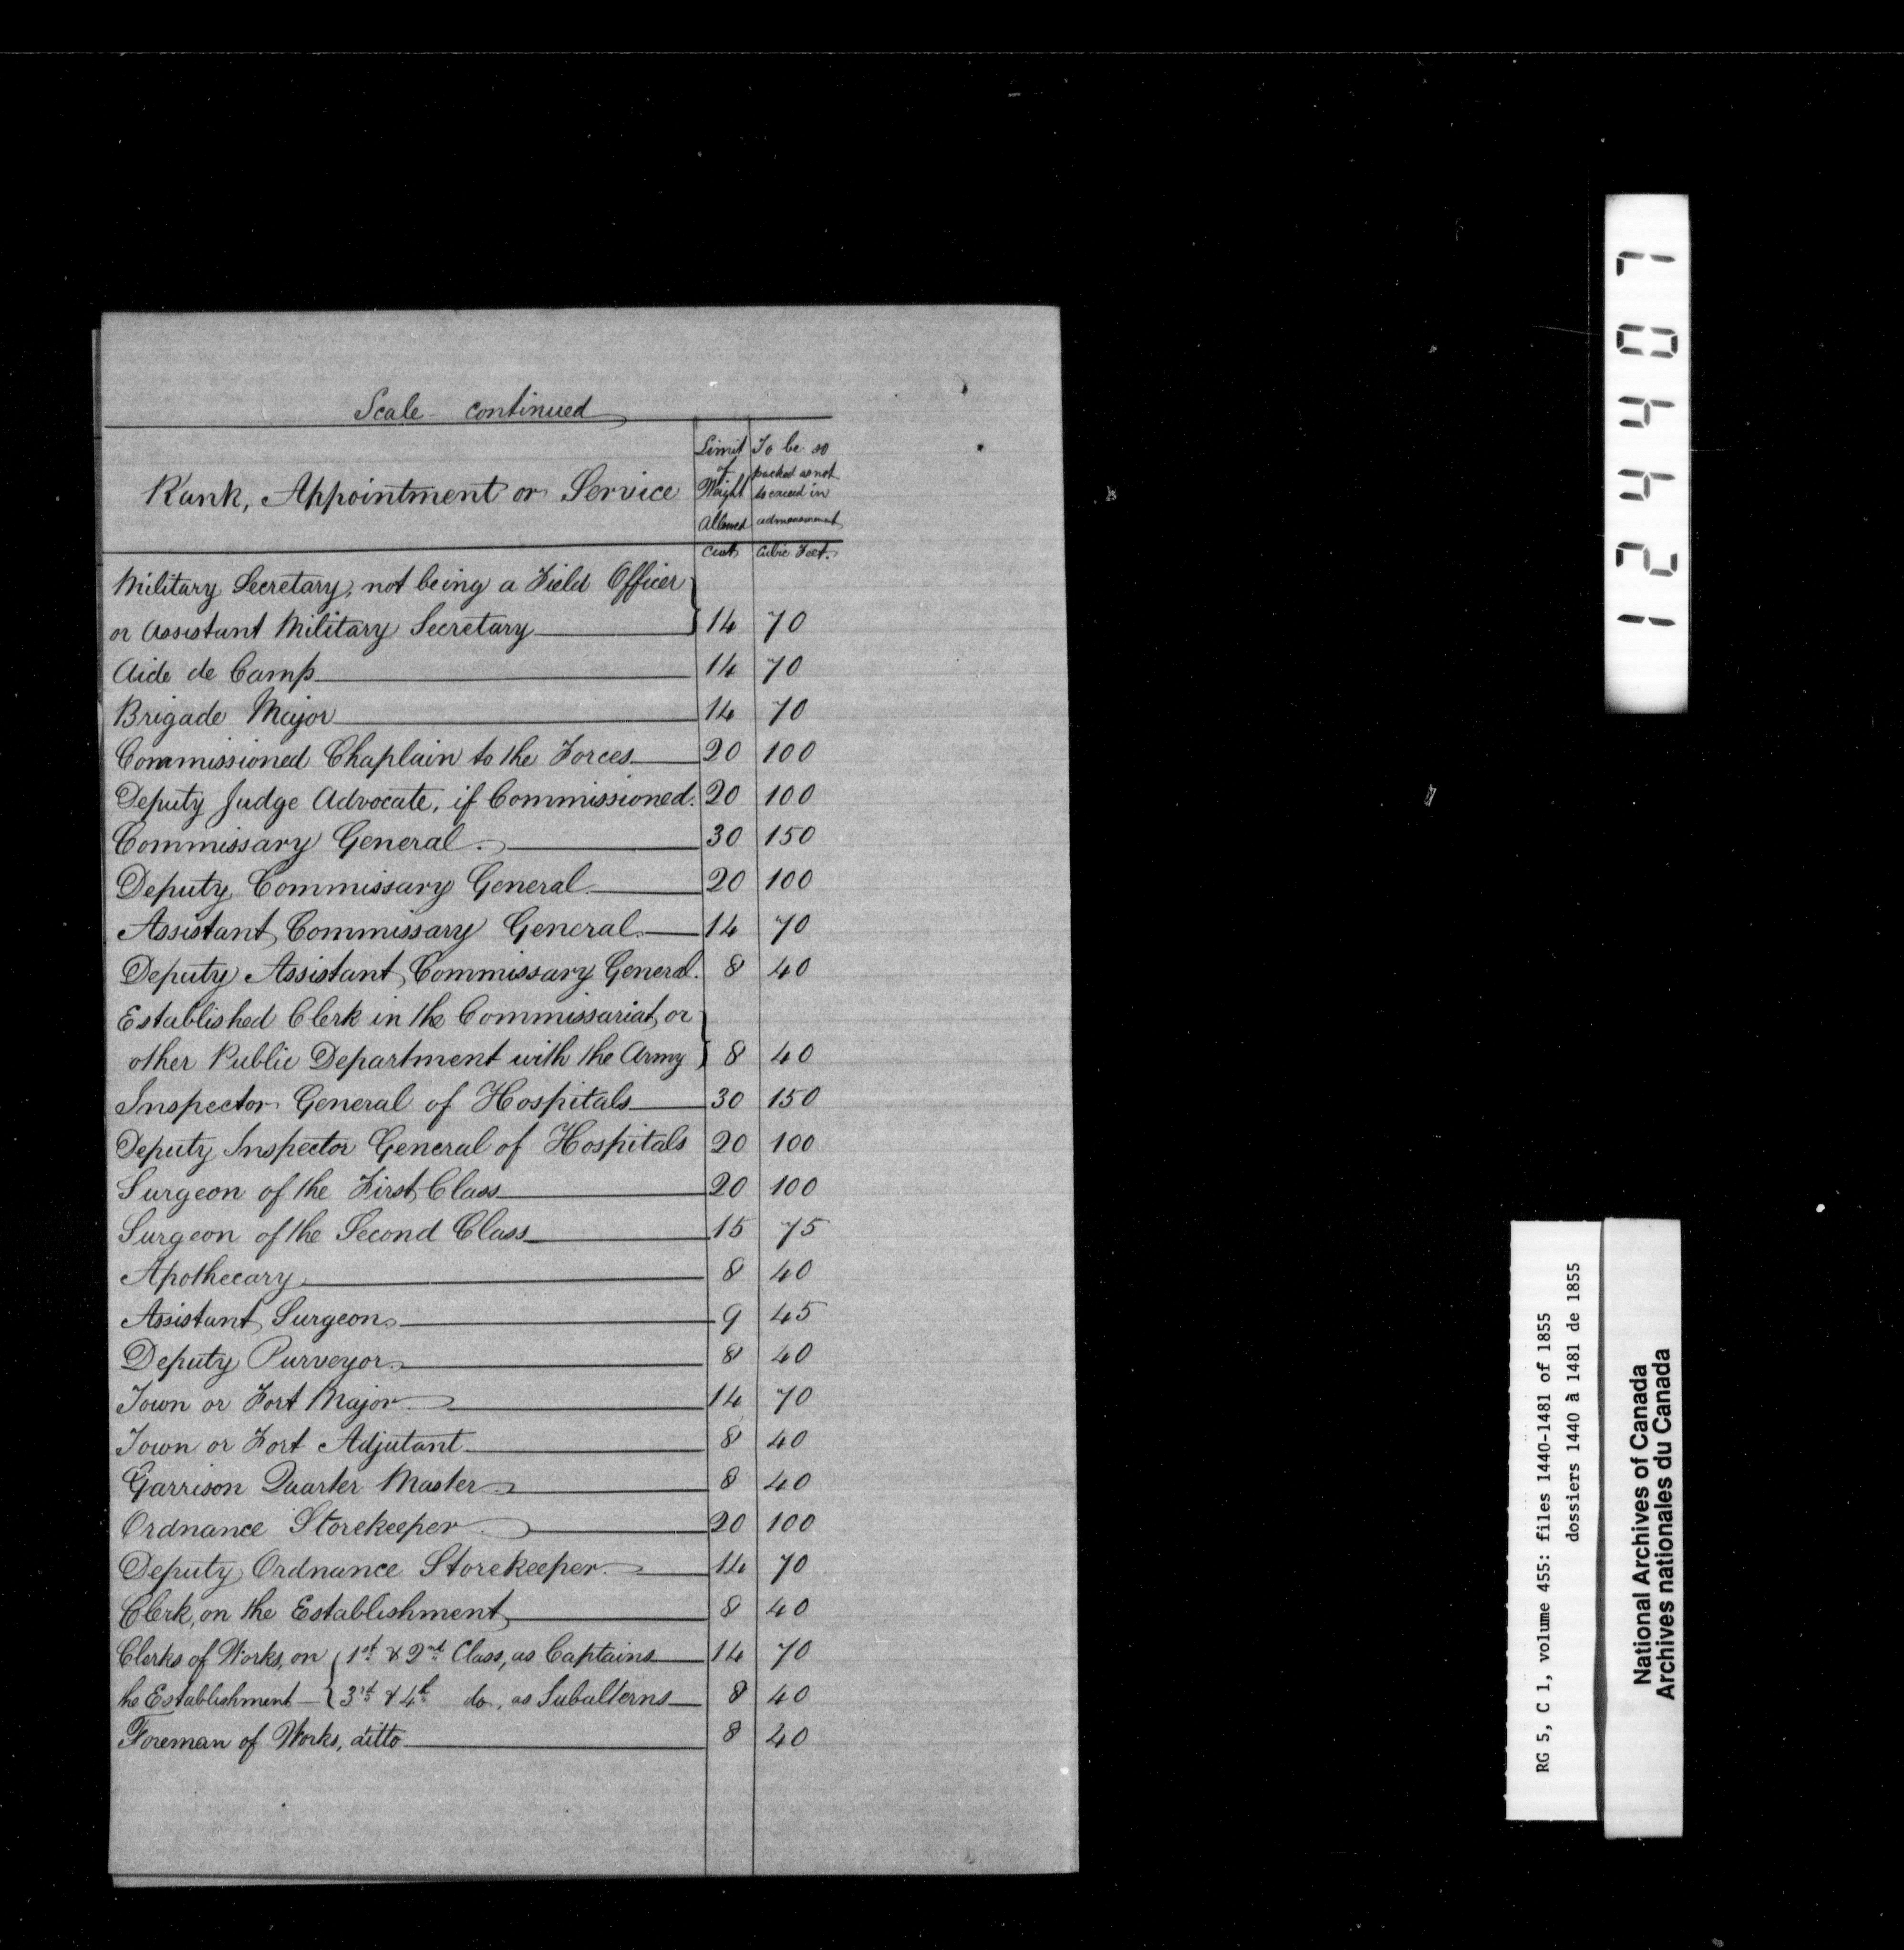 Scale continued
Rank, Appointment or Service
Limit of Weight Allowed
To be so packed as not to exceed in admeasurement
Cwt Cubic Feet.
Military Secretary, not being a Field Officer
or Assistant Military Secretary 14 70
Aide de Camp 14 70
Brigade Major 14 70
Commissioned Chaplain to the Forces 20 100
Deputy Judge Advocate, if Commissioned. 20 100
Commissary General. 30 150
Deputy Commissary General 20 100
Assistant Commissary General. 14 70
Deputy Assistant Commissary General. 8 40
Established Clerk in the Commissariat, or
other Public Department with the Army 8 40
Inspector General of Hospitals 30 150
Deputy Inspector General of Hospitals 20 100
Surgeon of the First Class 20 100
Surgeon of the Second Class 15 75
Apothecary 8 40
Assistant Surgeon 9 45
Deputy Purveyor 8 40
Town or Fort Major 14 70
Town or Fort Adjutant 8 40
Garrison Quarter Master 8 40
Ordnance Storekeeper 20 100
Deputy Ordnance Storekeeper 14 70
Clerk, on the Establishment 8 40
Clerks of Works, on { 1st & 2nd Class, as Captains 14 70
he Establishment { 3rd & 4th do, as Subalterns 8 40
Foreman of Works, ditto 8 40
124407
RG 5, C 1, volume 455: files 1440-1481 of 1855
dossiers 1440 à 1481 de 1855
National Archives of Canada
Archives nationales du Canada